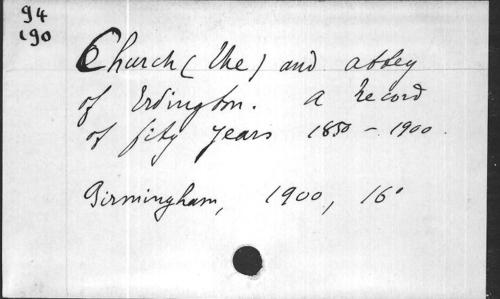 94
190
Church (the) and abbey
of Erdington. A Record
of fify years 1850 - 1900.
Birmingham, 1900, 16°